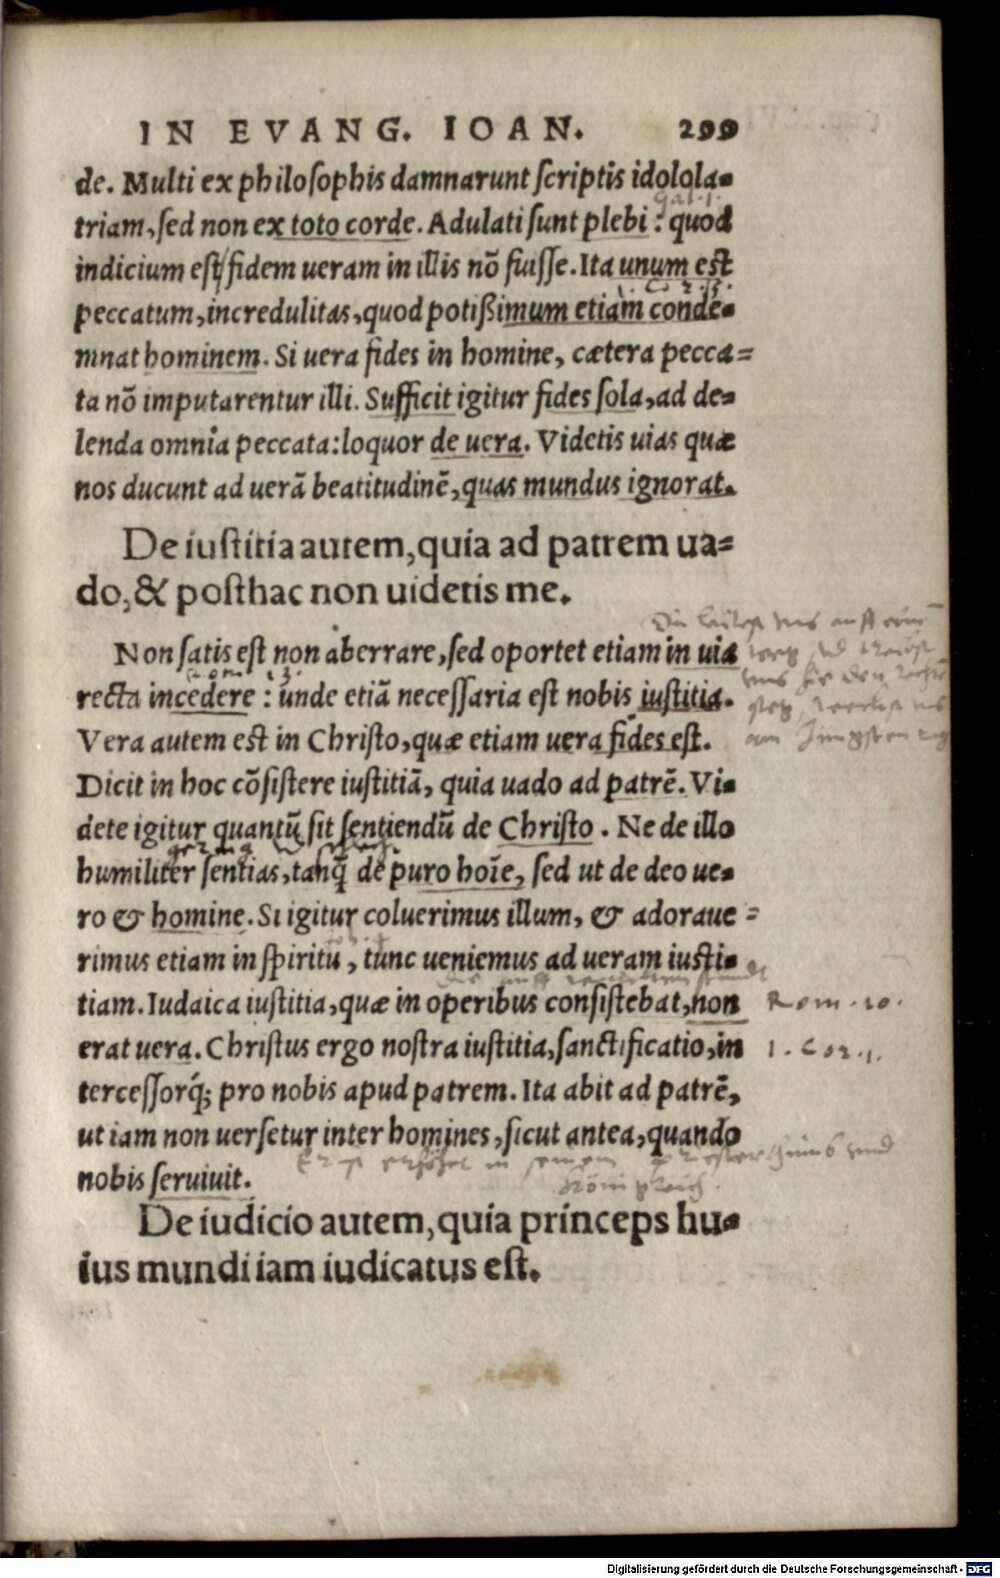 IN EVANG. IOAN. 299
de. Multi ex philosophis damnarunt scriptis idolola-
triam, sed non ex toto corde. Adulati sunt plebi: quod
indicium est, fidem ueram in illis nō fuisse. Ita unum est
peccatum, incredulitas, quod potißimum etiam conde-
mnat hominem. Si uera fides in homine, cætera pecca-
ta nō imputarentur illi. Sufficit igitur fides sola, ad de-
lenda omnia peccata: loquor de uera. Videtis uias quæ
nos ducunt ad uerā beatitudinē, quas mundus ignorat.
De iustitia autem, quia ad patrem ua-
do, & posthac non uidetis me.
Non satis est non aberrare, sed oportet etiam in uia
recta incedere: unde etiā necessaria est nobis iustitia.
Vera autem est in Christo, quæ etiam uera fides est.
Dicit in hoc cōsistere iustitiā, quia uado ad patrē. Vi-
dete igitur quantū sit sentiendū de Christo. Ne de illo
humiliter sentias, tanq̄ de puro hoīe, sed ut de deo ue-
ro & homine. Si igitur coluerimus illum, & adoraue-
rimus etiam in spiritu, tunc ueniemus ad ueram iusti-
tiam. Iudaica iustitia, quæ in operibus consistebat, non
Rom. 10.
erat uera. Christus ergo nostra iustitia, sanctificatio, in
1. Cor. 1.
tercessorq́; pro nobis apud patrem. Ita abit ad patrē,
ut iam non uersetur inter homines, sicut antea, quando
nobis seruiuit.
De iudicio autem, quia princeps hu-
ius mundi iam iudicatus est.
Digitalisierung gefördert durch die Deutsche Forschungsgemeinschaft - DFG